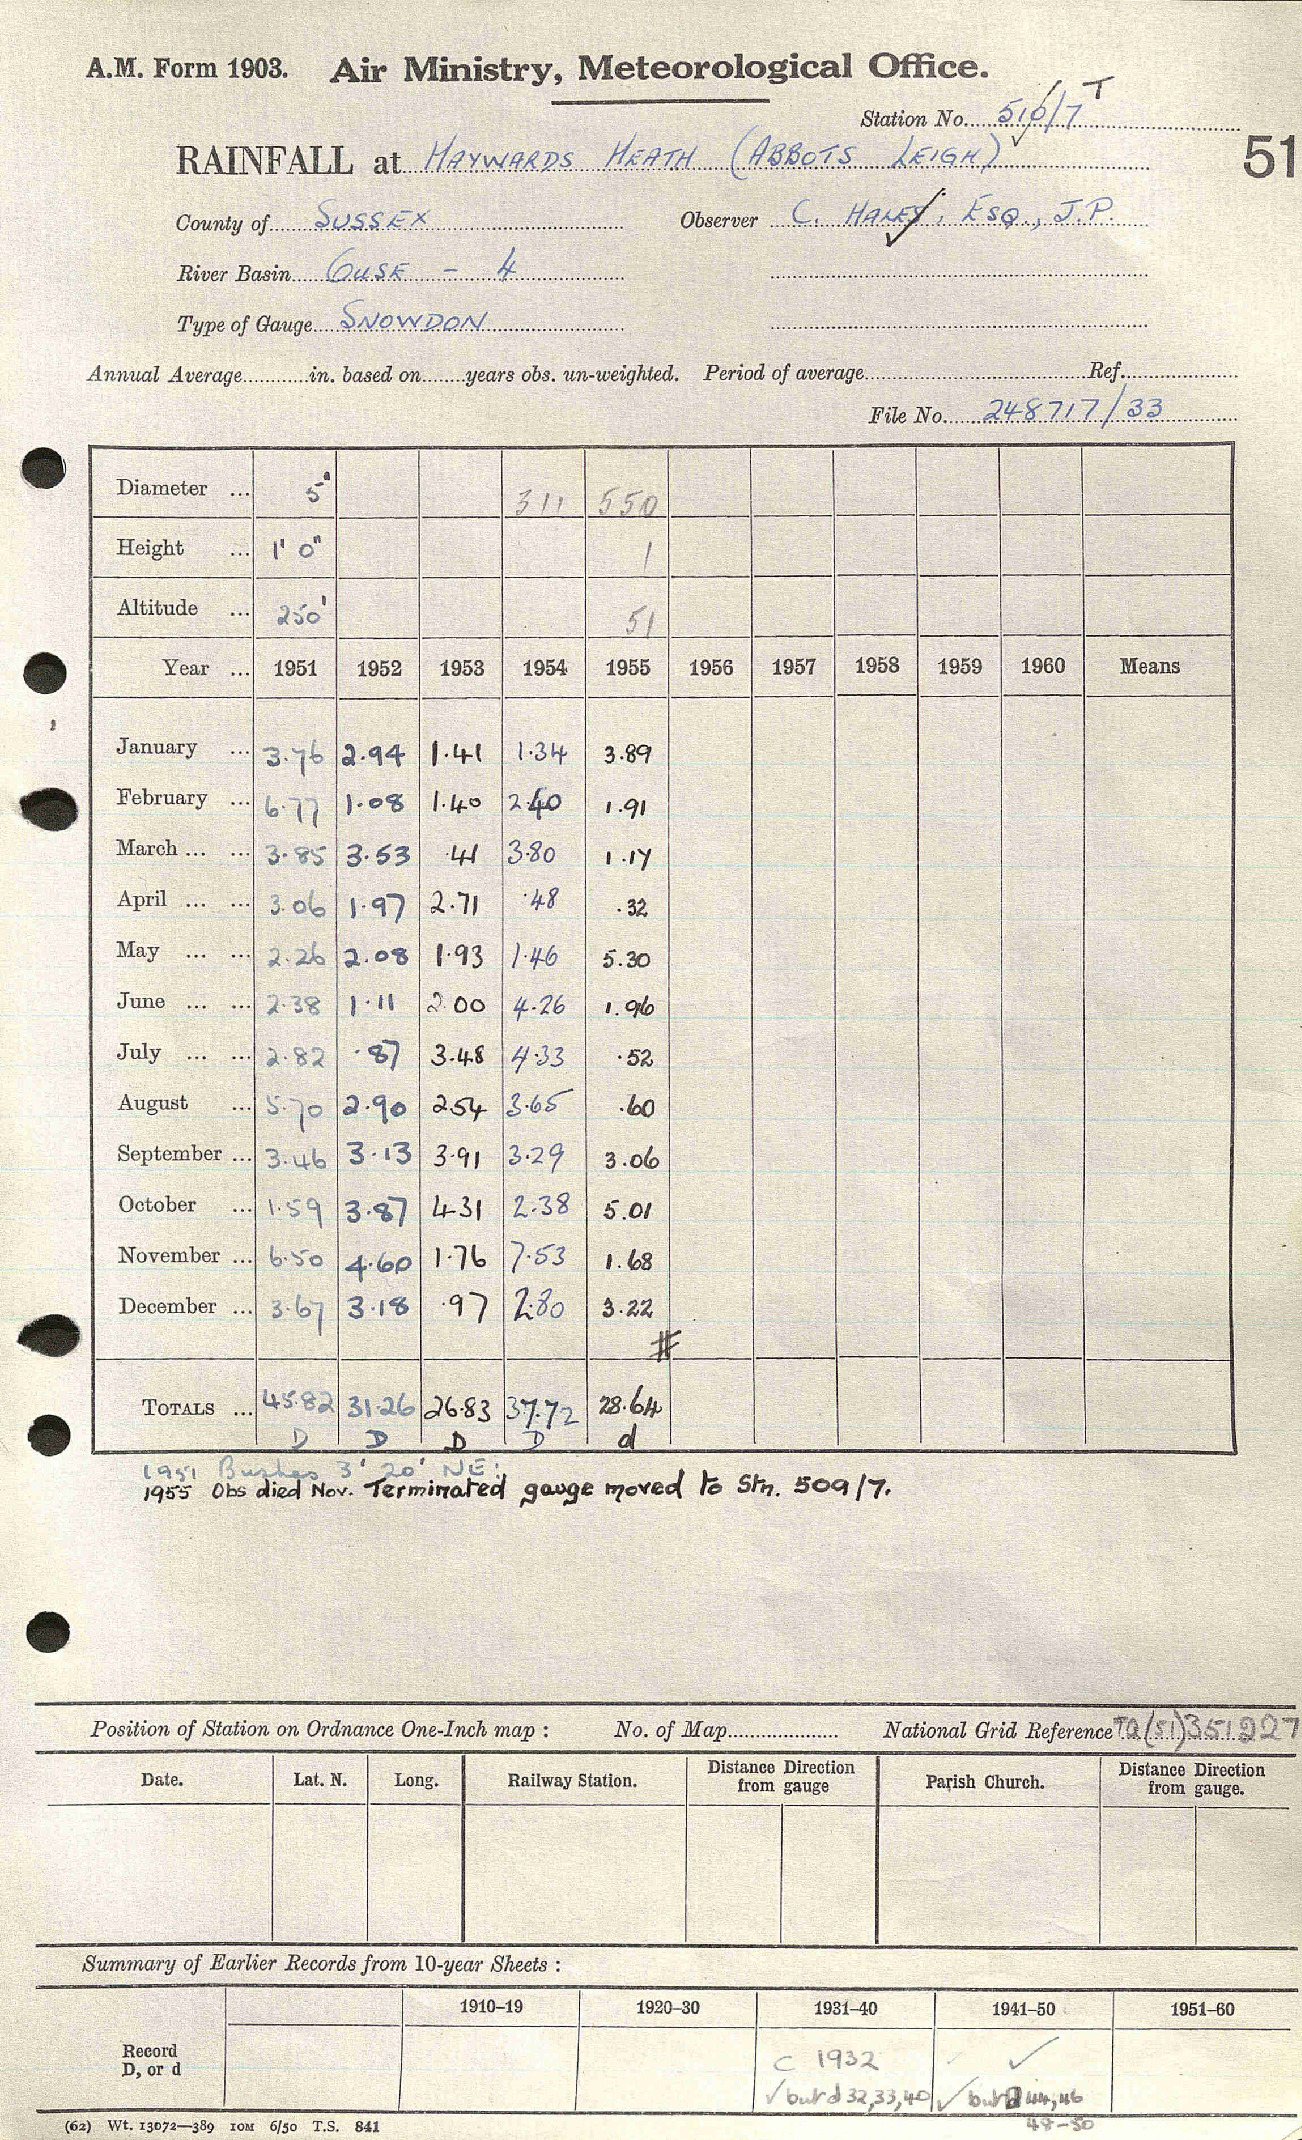 A.M. Form 1903. Air Ministry, Meteorological Office.
Station No. 510/7 T
RAINFALL at HAYWARDS HEATH (ABBOTS LEIGH)
51
County of SUSSEX Observer C. HANEY, ESQ., J.P.
River Basin OUSE - 4
Type of Gauge SNOWDON
Annual Average in. based on years obs. un-weighted. Period of average Ref.
File No. 248717/33
Diameter ... 5" 311 550
Height ... 1' 0" 1
Altitude ... 250' 51
Year ... 1951 1952 1953 1954 1955 1956 1957 1958 1959 1960 Means
January ... 3.76 2.94 1.41 1.34 3.89
February ... 6.77 1.08 1.40 2.40 1.91
March ... ... 3.85 3.53 .41 3.80 1.17
April ... ... 3.06 1.97 2.71 .48 .32
May ... ... 2.26 2.08 1.93 1.46 5.30
June ... ... 2.38 1.11 2.00 4.26 1.96
July ... ... 2.82 .87 3.48 4.33 .52
August ... 5.70 2.90 2.54 3.65 .60
September ... 3.46 3.13 3.91 3.29 3.06
October ... 1.59 3.87 4.31 2.38 5.01
November ... 6.50 4.60 1.76 7.53 1.68
December ... 3.67 3.18 .97 2.80 3.22
#
TOTALS ... 45.82 31.26 26.83 37.72 28.64
D D D D d
1951 Bushes 3' 20' NE.
1955 Obs died Nov. Terminated gauge moved to Stn. 509/7.
Position of Station on Ordnance One-Inch map : No. of Map National Grid Reference TQ(51)351227
Date. Lat. N. Long. Railway Station. Distance Direction from gauge Parish Church. Distance Direction from gauge.
Summary of Earlier Records from 10-year Sheets :
1910–19 1920–30 1931–40 1941–50 1951–60
Record D, or d
C 1932 ✓
✓ but d 32,33,40 ✓ but d 44,46
48-50
(62) Wt. 13072—389 10M 6/50 T.S. 841